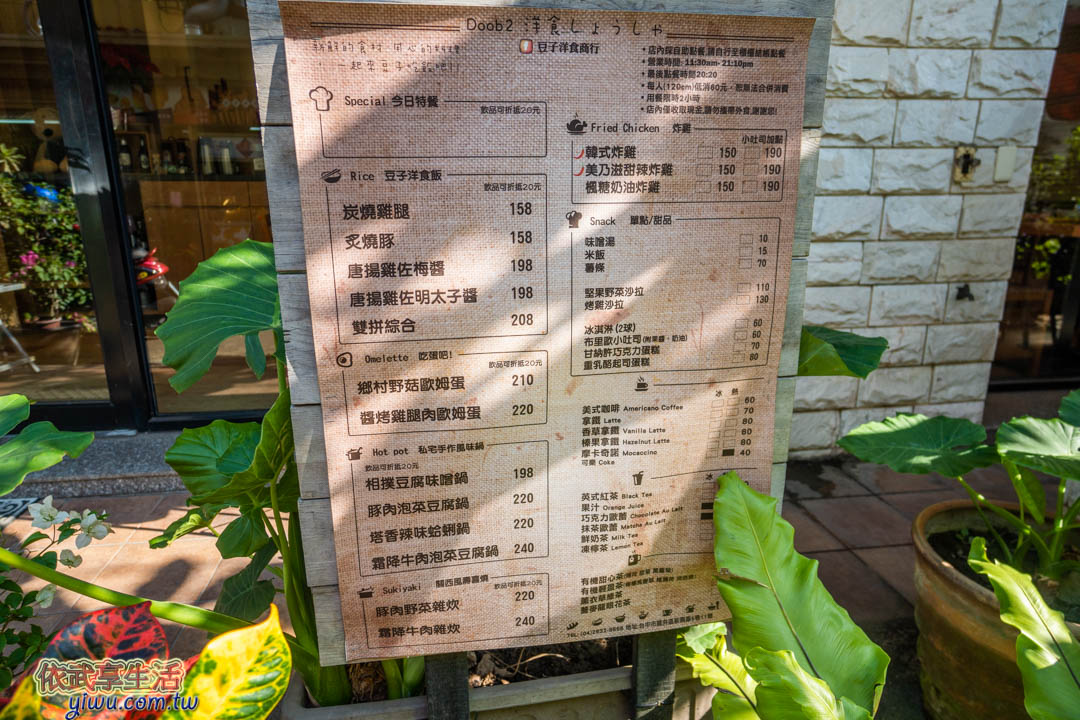 Doob2 洋食しょうしゃ
新鮮的食材 用心的料理
一起來豆子吃飯吧!!
豆子洋食商行
•店內採自助點餐,請自行至櫃檯結帳點餐
•營業時間: 11:30am- 21:10pm
•最後點餐時間20:20
•每人(120cm)低消60元，恕無法合併消費
•用餐限時2小時
•店內僅收取現金,請勿攜帶外食,謝謝您!
Special 今日特餐
飲品可折抵20元
Rice 豆子洋食飯
飲品可折抵20元
炭燒雞腿 158
炙燒豚 158
唐揚雞佐梅醬 198
唐揚雞佐明太子醬 198
雙拼綜合 208
Omelette 吃蛋吧!
飲品可折抵20元
鄉村野菇歐姆蛋 210
醬烤雞腿肉歐姆蛋 220
Hot pot 私宅手作風味鍋
飲品可折抵20元
相撲豆腐味噌鍋 198
豚肉泡菜豆腐鍋 220
塔香辣味蛤蜊鍋 220
霜降牛肉泡菜豆腐鍋 240
Sukiyaki 關西風壽喜燒
飲品可折抵20元
豚肉野菜雜炊 220
霜降牛肉雜炊 240
Fried Chicken 炸雞
小吐司加點
韓式炸雞 150 190
美乃滋甜辣炸雞 150 190
楓糖奶油炸雞 150 190
Snack 單點/甜品
味噌湯 10
米飯 15
薯條 70
堅果野菜沙拉 110
烤雞沙拉 130
冰淇淋 (2球) 60
布里歐小吐司 (附果醬、奶油) 60
甘納許巧克力蛋糕 70
重乳酪起司蛋糕 80
冰 熱
美式咖啡 Americano Coffee 60
拿鐵 Latte 70
香草拿鐵 Vanilla Latte 80
榛果拿鐵 Hazelnut Latte 80
摩卡奇諾 Mocaccino 80
可樂 Coke 40
冰
英式紅茶 Black Tea
果汁 Orange Juice
巧克力歐蕾 Chocolate Au Lait
抹茶歐蕾 Matcha Au Lait
鮮奶茶 Milk Tea
凍檸茶 Lemon Tea
有機甜心茶
有機輕盈茶
薰衣草綠茶
薔夢龍眼花茶
TEL:(04)2633-9868
依武享生活
yiwu.com.tw